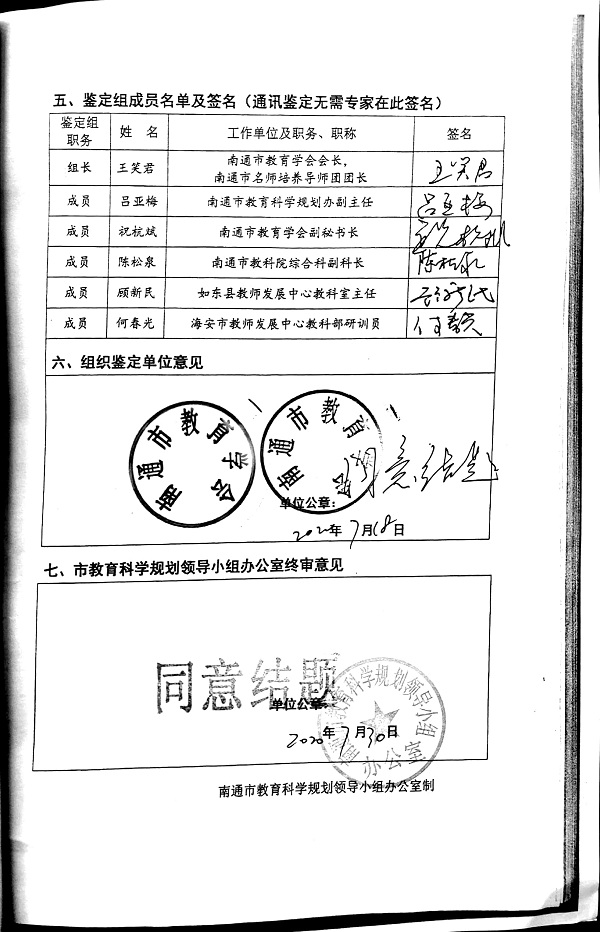 五、鉴定组成员名单及签名（通讯鉴定无需专家在此签名）
鉴定组职务 姓 名 工作单位及职务、职称 签名
组长 王笑君 南通市教育学会会长，南通市名师培养导师团团长 王笑君
成员 吕亚梅 南通市教育科学规划办副主任 吕亚梅
成员 祝杭斌 南通市教育学会副秘书长
成员 陈松泉 南通市教科院综合科副科长 陈松泉
成员 顾新民 如东县教师发展中心教科室主任
成员 何春光 海安市教师发展中心教科部研训员
六、组织鉴定单位意见
南通市教育学会
南通市教育学会
同意结题
单位公章：
2020年7月18日
七、市教育科学规划领导小组办公室终审意见
同意结题
单位公章：
南通市教育科学规划领导小组
办公室
2020年7月30日
南通市教育科学规划领导小组办公室制